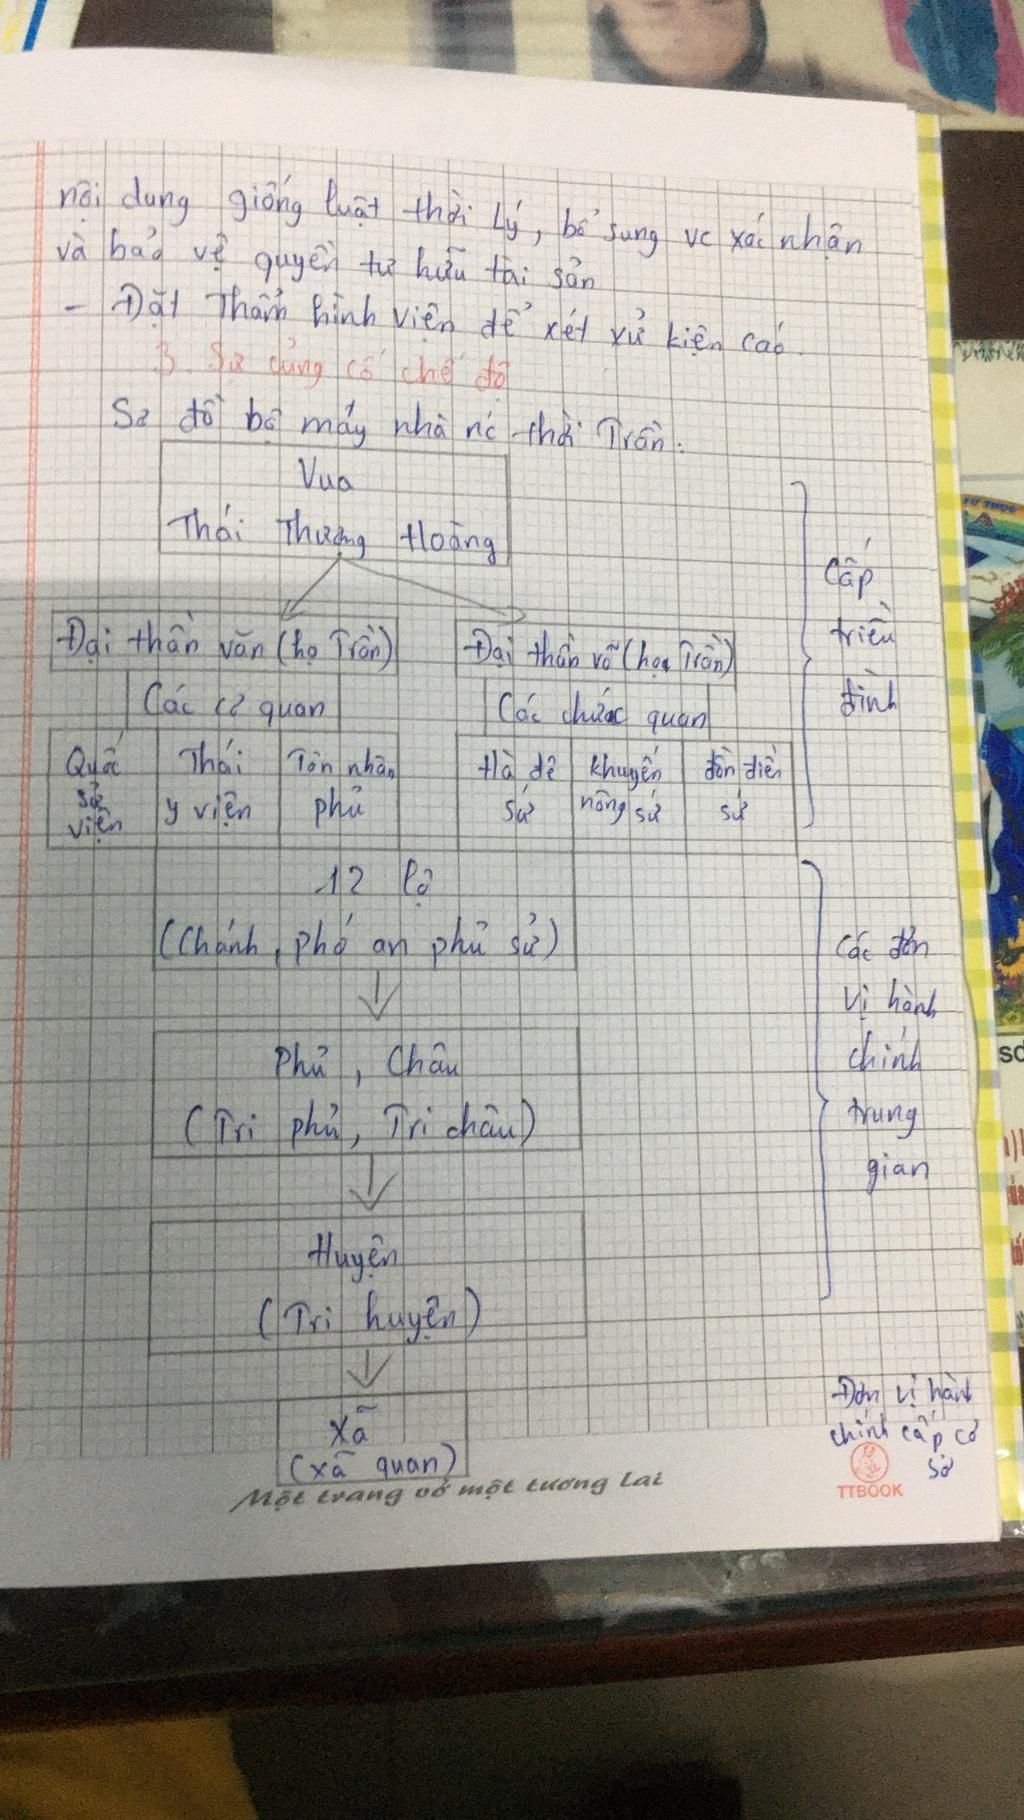 nội dung giống luật thời Lý, bổ sung vc xác nhận
và bảo vệ quyền tư hữu tài sản
- Đặt Thẩm hình viện để xét xử kiện cáo.
3. Sự củng cố chế độ
Sơ đồ bộ máy nhà nc thời Trần:
Vua
Thái Thượng Hoàng
Đại thần văn (họ Trần)
Đại thần võ (họ Trần)
Các cơ quan
Các chức quan
Quốc
sử
viện
Thái
y viện
Tôn nhân
phủ
Hà đê
sứ
khuyến
nông sứ
đồn điền
sứ
Cấp
triều
đình
12 lộ
(Chánh, phó an phủ sứ)
Phủ, Châu
(Tri phủ, Tri châu)
Huyện
(Tri huyện)
Các đơn
vị hành
chính
trung
gian
Xã
(xã quan)
Đơn vị hành
chính cấp cơ
sở
Một trang vở một tương lai
TTBOOK